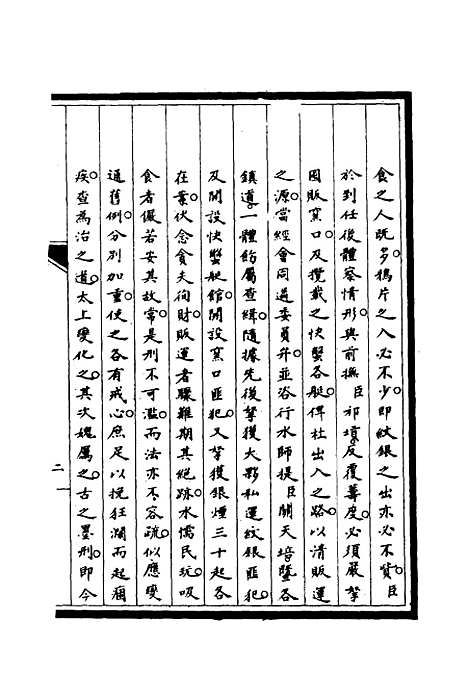 食之人既多鴉片之入必不少即紋銀之出亦必不貲臣
於到任後體察情形與前撫臣祁𡎴反覆籌度必須嚴拏
囤販窯口及攬載之快蟹各艇俾杜出入之路以清販運
之源當經會同遴委員弁並咨行水師提臣關天培曁各
鎮道一體飭屬查緝隨據先後拏獲大夥私運紋銀匪犯
及開設快蟹艇館開設窯口匪犯又拏獲銀煙三十起各
在案伏念貪夫徇財販運者驟難期其絕跡水懦民玩吸
食者儼若安其故常是刑不可濫而法亦不容疏似應變
通舊例分別加重使之各有戒心庶足以挽狂瀾而起痼
疾查為治之道太上變化之其次媿厲之古之墨刑即今
二